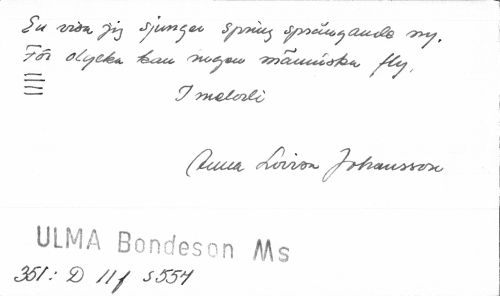 En visa jig sjunger spring sprängande ny.
För olycka kan ingen människa fly.
I melodi
Anna Lovisa Johansson
ULMA Bondeson Ms
351: D 11f s 554